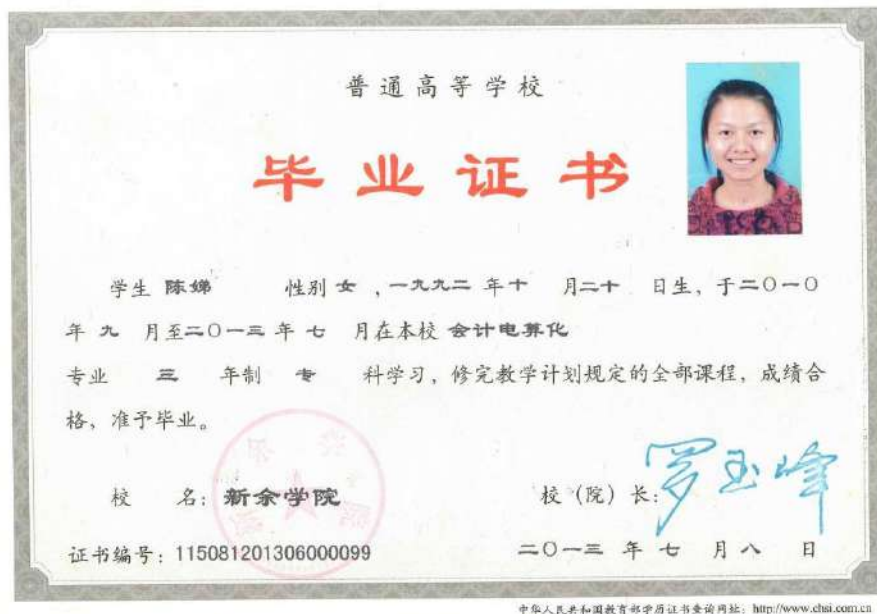 普通高等学校
毕业证书
学生 陈娣 性别 女 ，一九九二 年 十 月 二十 日生，于二〇一〇
年 九 月至二〇一三 年 七 月在本校 会计电算化
专业 三 年制 专 科学习，修完教学计划规定的全部课程，成绩合
格，准予毕业。
校 名：新余学院 校（院）长：罗玉峰
证书编号：115081201306000099 二〇一三 年 七 月 八 日
中华人民共和国教育部学历证书查询网址：http://www.chsi.com.cn